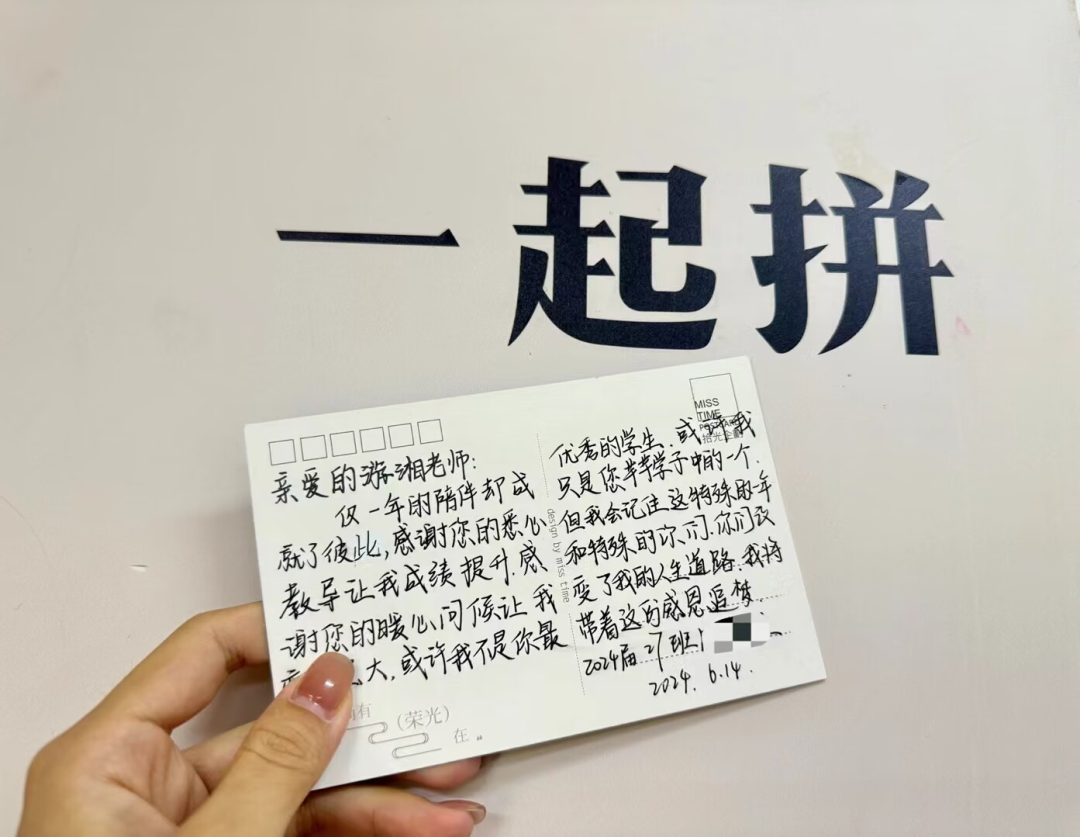 一起拼
MISS
TIME
POSTCARD
亲爱的漩湘老师:
仅一年的陪伴却成
就了彼此,感谢您的悉心
教导让我成绩提升.感
谢您的暖心问候让我
大,或许我不是你最
优秀的学生.或许我
只是您芊芊学子中的一个.
但我会记住这特殊的一年
和特殊的你们.你们改
变了我的人生道路.我将
带着这的感恩追梦.
2024届27班
2024.6.14.
design by miss time
有
(荣光)
在